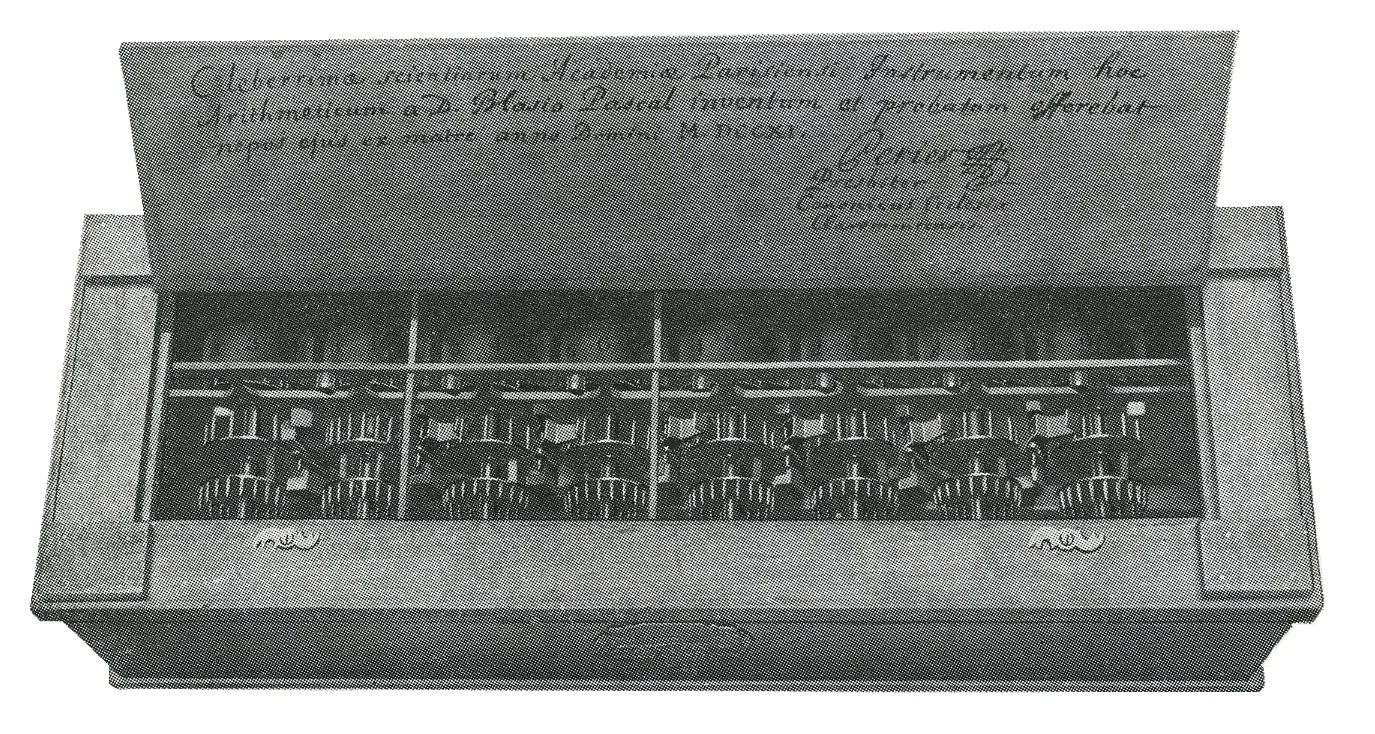 Celeberrimæ scientiarum Academiæ Parisiensi Instrumentum hoc
Arithmeticum a D. Blasio Pascal inventum et probatum offerebat
nepos ejus ex matre anno Domini M. DCCXI.
Perier
Presbiter
Canonicus Ecclesiæ
Claromontensis